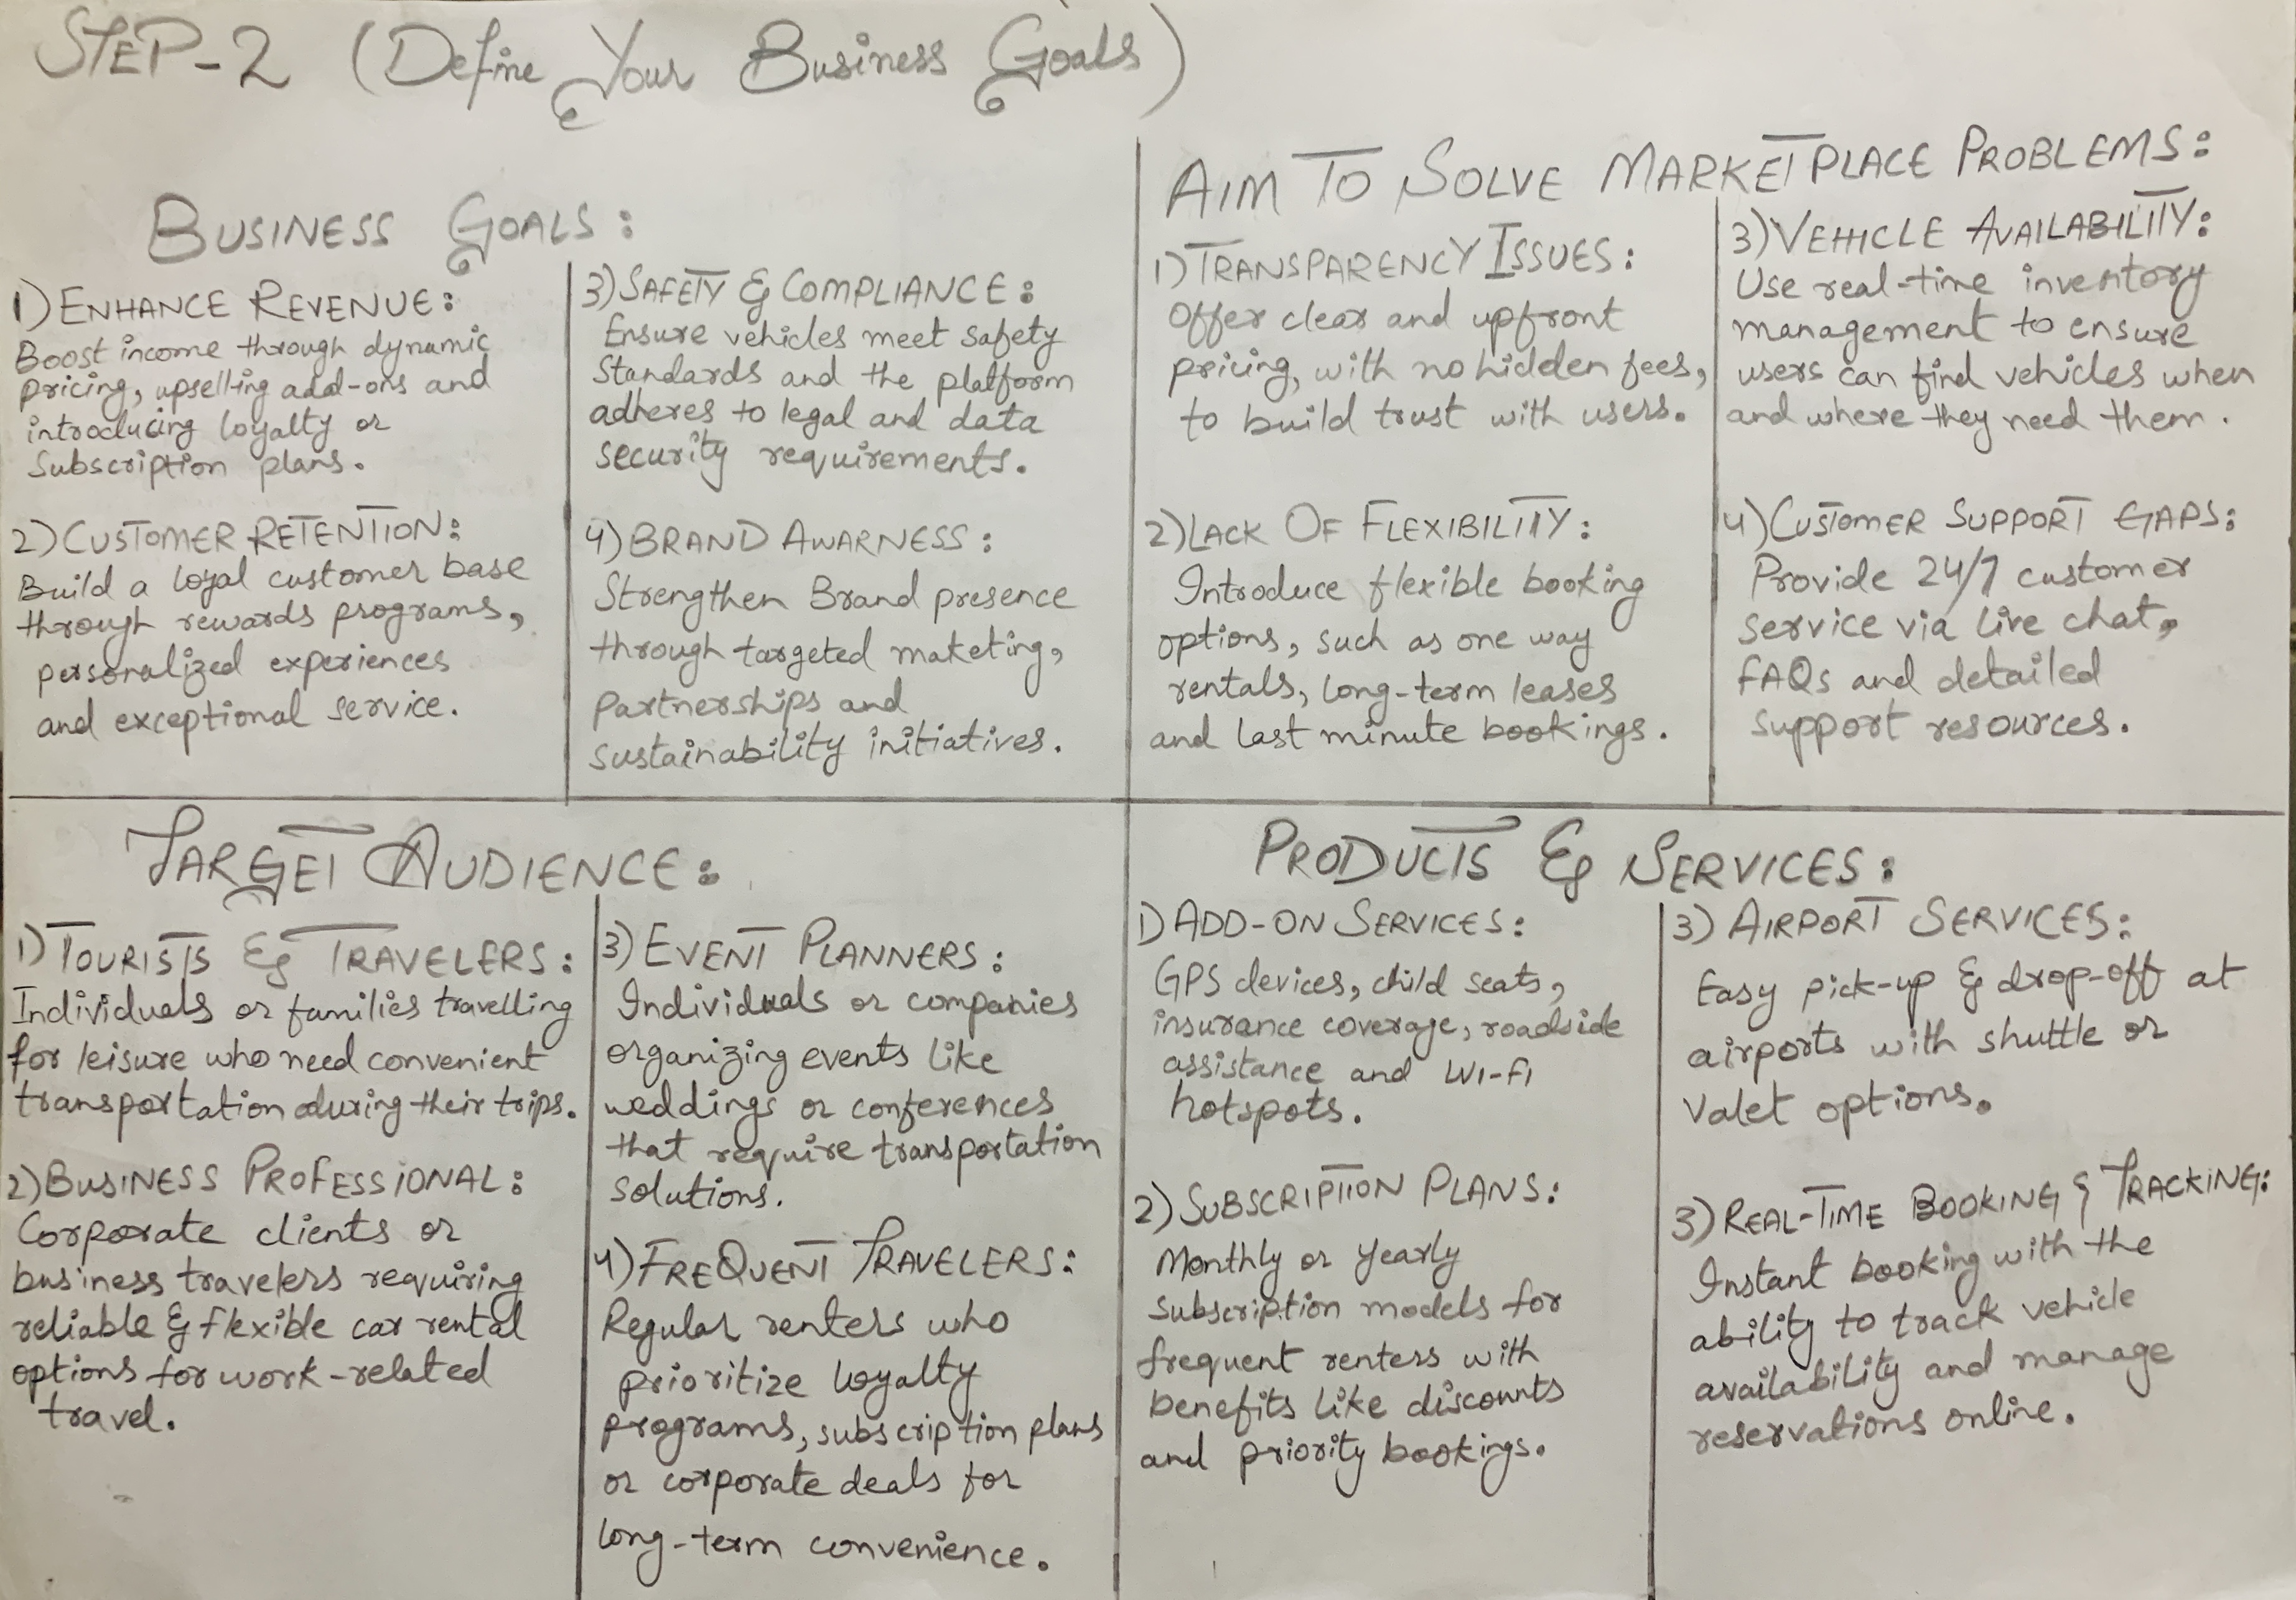 STEP-2 (Define Your Business Goals)
BUSINESS GOALS:
1) ENHANCE REVENUE:
Boost income through dynamic
pricing, upselling add-ons and
introducing loyalty or
Subscription plans.
2) CUSTOMER RETENTION:
Build a loyal customer base
through rewards programs,
personalized experiences
and exceptional service.
3) SAFETY & COMPLIANCE:
Ensure vehicles meet safety
Standards and the platform
adheres to legal and data
security requirements.
4) BRAND AWARNESS:
Strengthen Brand presence
through targeted maketing,
partnerships and
sustainability initiatives.
AIM TO SOLVE MARKETPLACE PROBLEMS:
1) TRANSPARENCY ISSUES:
Offer clear and upfront
pricing, with no hidden fees,
to build trust with users.
2) LACK OF FLEXIBILITY:
Introduce flexible booking
options, such as one way
rentals, long-term leases
and last minute bookings.
3) VEHICLE AVAILABILITY:
Use real-time inventory
management to ensure
users can find vehicles when
and where they need them.
4) CUSTOMER SUPPORT GAPS:
Provide 24/7 customer
service via live chat,
FAQs and detailed
support resources.
TARGET AUDIENCE:
1) TOURISTS & TRAVELERS:
Individuals or families travelling
for leisure who need convenient
transportation during their trips.
2) BUSINESS PROFESSIONAL:
Corporate clients or
business travelers requiring
reliable & flexible car rental
options for work-related
travel.
3) EVENT PLANNERS:
Individuals or companies
organizing events like
weddings or conferences
that require transportation
solutions.
4) FREQUENT TRAVELERS:
Regular renters who
prioritize loyalty
programs, subscription plans
or corporate deals for
long-term convenience.
PRODUCTS & SERVICES:
1) ADD-ON SERVICES:
GPS devices, child seats,
insurance coverage, roadside
assistance and WI-FI
hotspots.
2) SUBSCRIPTION PLANS:
Monthly or yearly
subscription models for
frequent renters with
benefits like discounts
and priority bookings.
3) AIRPORT SERVICES:
Easy pick-up & drop-off at
airports with shuttle or
Valet options.
3) REAL-TIME BOOKING & TRACKING:
Instant booking with the
ability to track vehicle
availability and manage
reservations online.